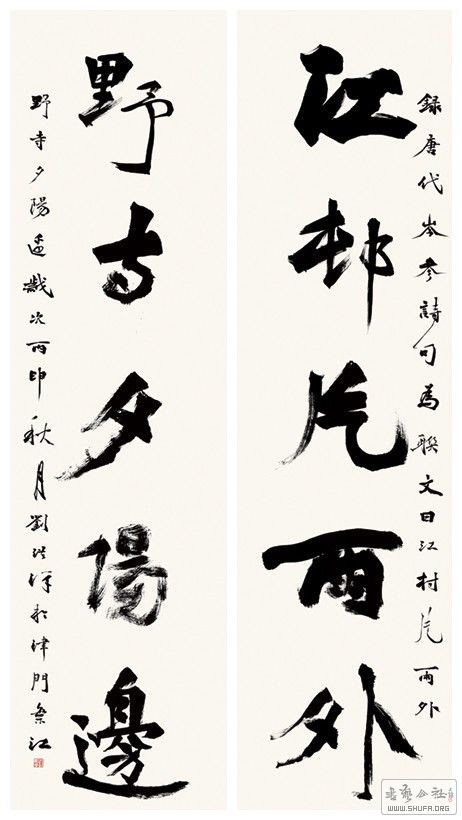 録唐代岑參詩句為聯文曰江村片雨外
江邨片雨外
野寺夕陽邊
野寺夕陽邊歲次丙申秋月劉洪洋於津門
WWW.SHUFA.ORG